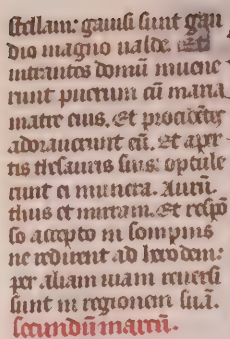 stellam: gauisi sunt gau
dio magno ualde. Et
intrantes domū inuene
runt puerum cū maria
matre eius. Et procidētes
adorauerunt eū. Et aper
tis thesauris suis: optule
runt ei munera. Aurū.
thus et mirram. Et respō
so accepto in sompnis
ne redirent ad herodem:
per aliam uiam reuersi
sunt in regionem suā.
secundū marcū.